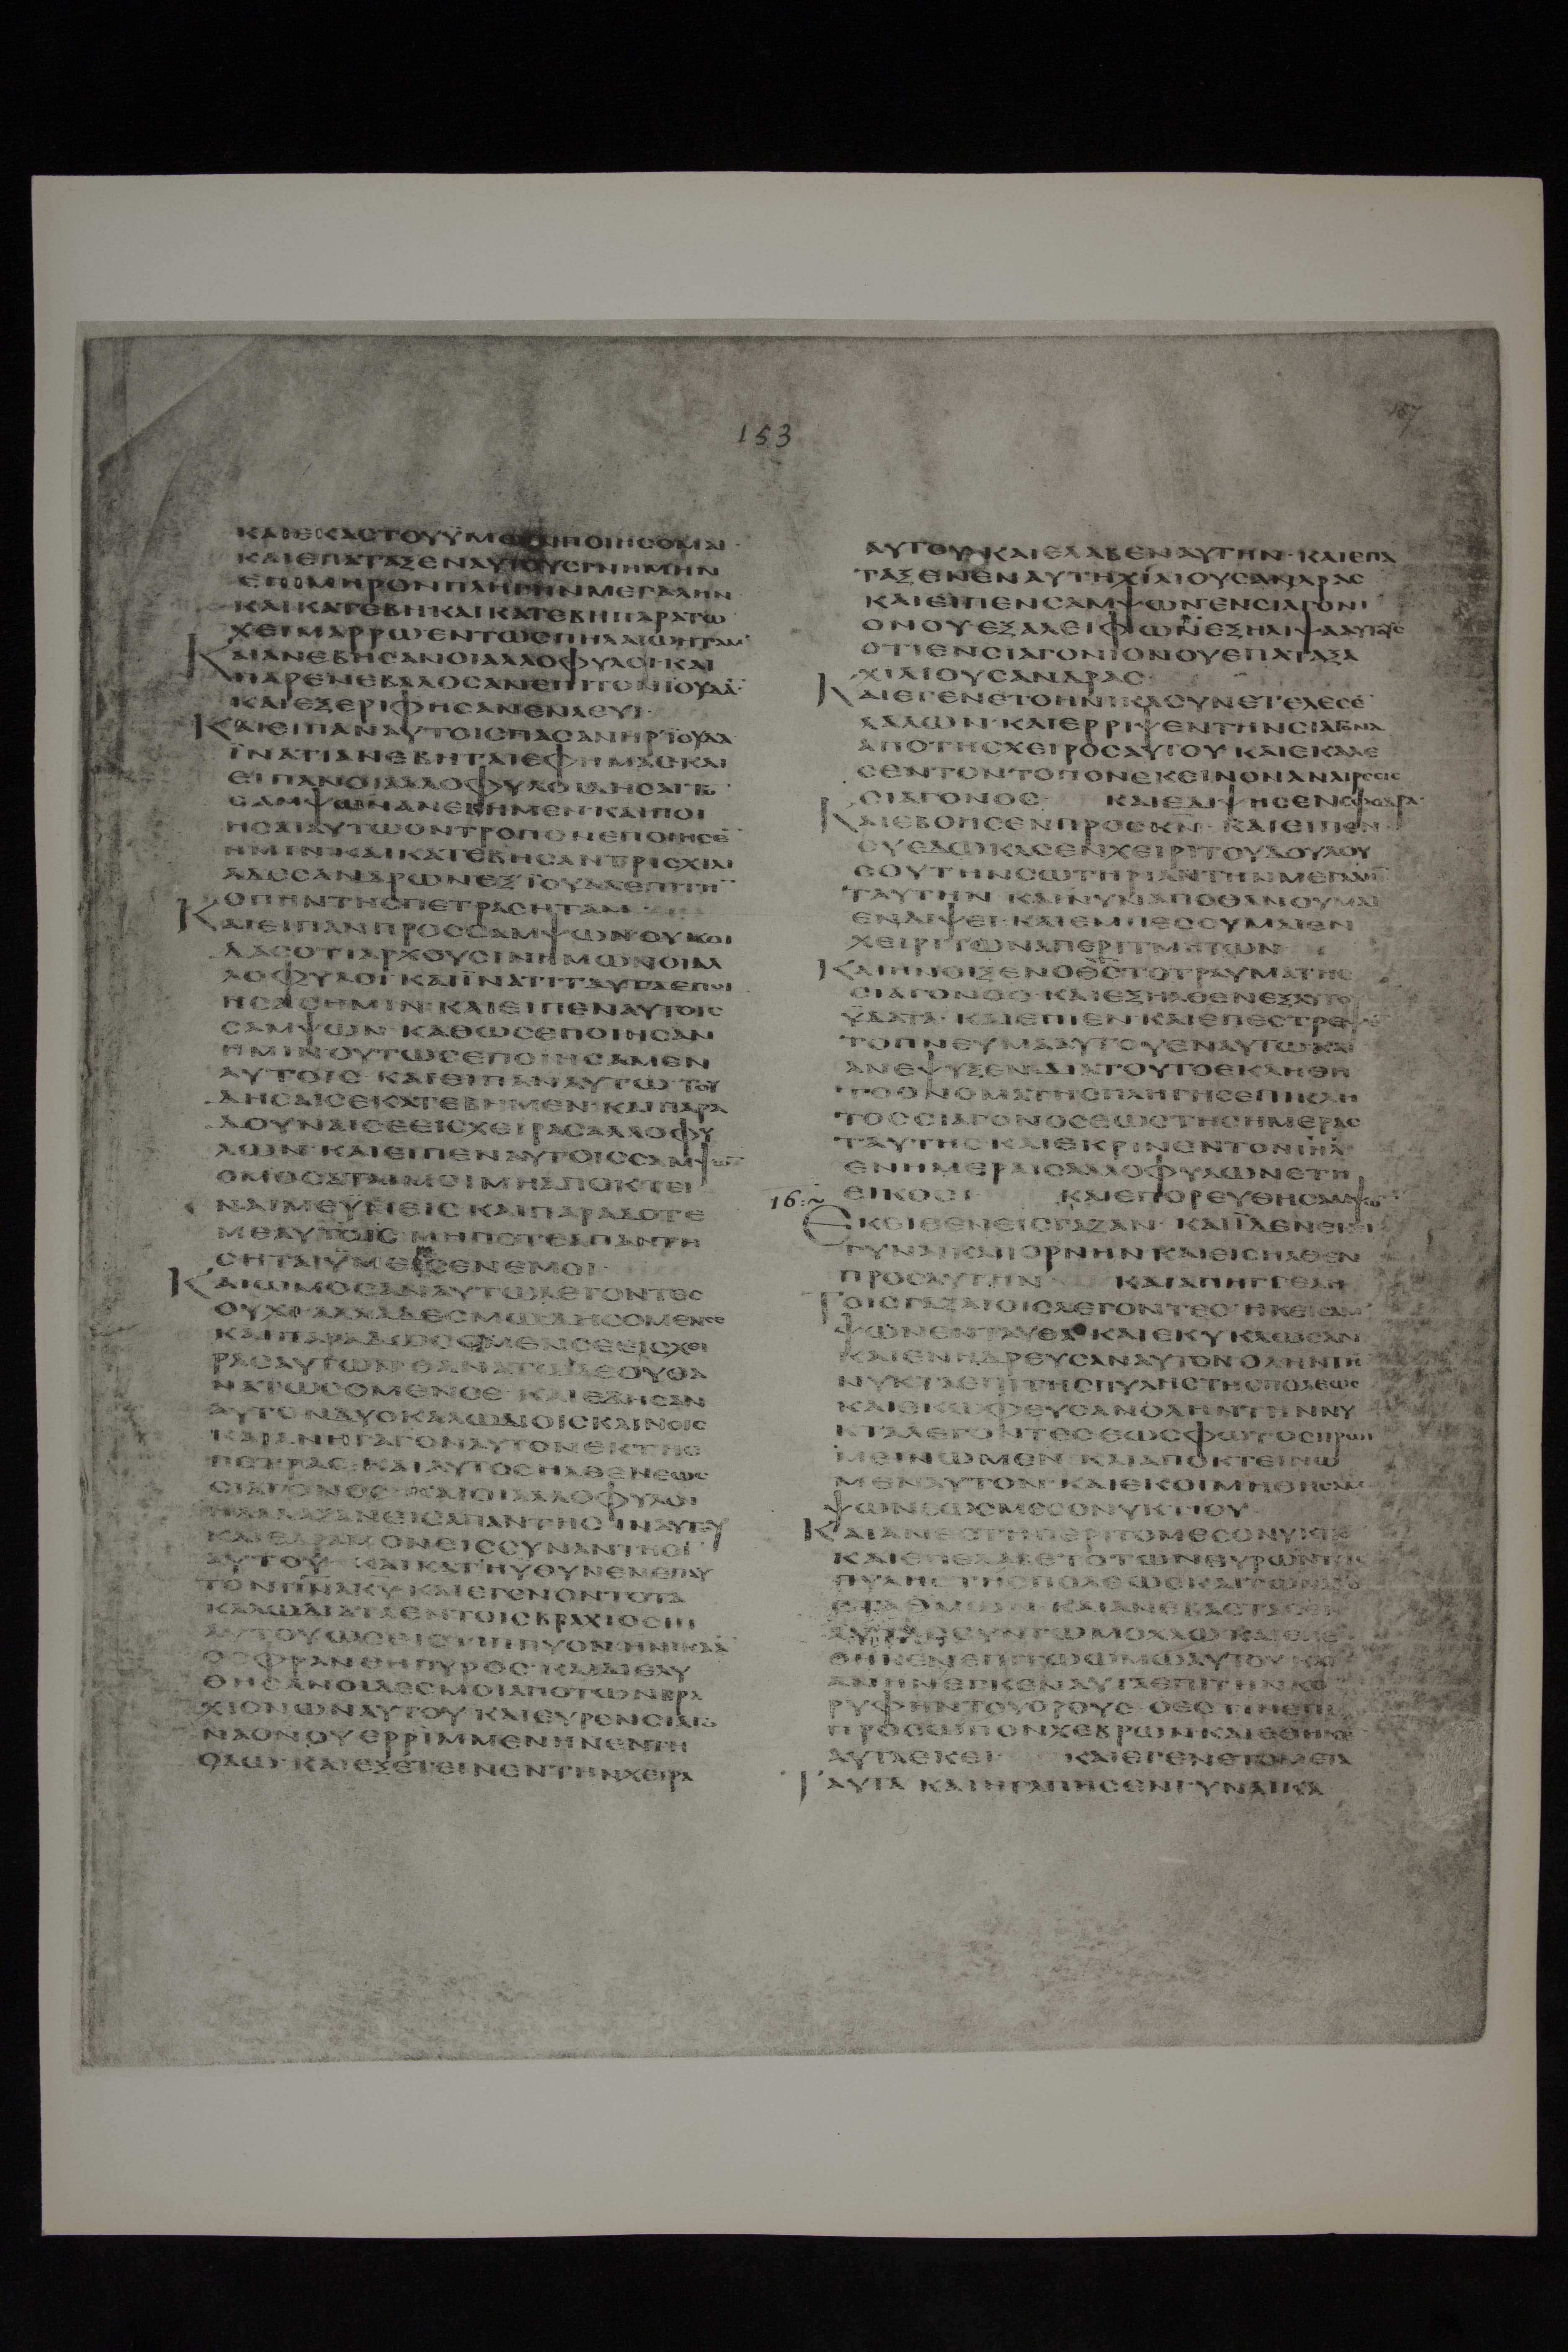 153
157
ΚΑΙΕΚΑСΤΟΥΫΜΩΝΠΟΙΗСΟΜΑΙ
ΚΑΙΕΠΑΤΑΞΕΝΑΥΤΟΥСΚΝΗΜΗΝ
ΕΠΙΜΗΡΟΝΠΛΗΓΗΝΜΕΓΑΛΗΝ
ΚΑΙΚΑΤΕΒΗΚΑΙΚΑΤΕΒΗΠΑΡΑΤΩ
ΧΕΙΜΑΡΡΩΕΝΤΩСΠΗΛΑΙΩΗΤΑΜ
ΚΑΙΑΝΕΒΗСΑΝΟΙΑΛΛΟΦΥΛΟΙΚΑΙ
ΠΑΡΕΝΕΒΑΛΟСΑΝΕΠΙΤΟΝΪΟΥΔΑ
ΚΑΙΕΞΕΡΙΦΗСΑΝΕΝΛΕΥΙ
ΚΑΙΕΙΠΑΝΑΥΤΟΙСΠΑСΑΝΗΡΪΟΥΔΑ
ΪΝΑΤΙΑΝΕΒΗΤΑΙΕΦΗΜΑС·ΚΑΙ
ΕΙΠΑΝΟΙΑΛΛΟΦΥΛΟΙΔΗСΑΙΤΟ
СΑΜΨΩΝΑΝΕΒΗΜΕΝ·ΚΑΙΠΟΙ
ΗСΑΙΑΥΤΩΟΝΤΡΟΠΟΝΕΠΟΙΗСΕ
ΗΜΙΝ·ΚΑΙΚΑΤΕΒΗСΑΝΤΡΙСΧΙΛΙ
ΑΔΕСΑΝΔΡΩΝΕΞΪΟΥΔΑΕΠΙΤΗ
ΟΠΗΝΤΗСΠΕΤΡΑСΗΤΑΜ
ΚΑΙΕΙΠΑΝΠΡΟССΑΜΨΩΝ·ΟΥΚΟΙ
ΔΑСΟΤΙΑΡΧΟΥСΙΝΗΜΩΝΟΙΑΛ
ΛΟΦΥΛΟΙ·ΚΑΙΪΝΑΤΙΤΑΥΤΑΕΠΟΙ
ΗСΑСΗΜΙΝ·ΚΑΙΕΙΠΕΝΑΥΤΟΙС
СΑΜΨΩΝ·ΚΑΘΩСΕΠΟΙΗСΑΝ
ΗΜΙΝΟΥΤΩСΕΠΟΙΗСΑΜΕΝ
ΑΥΤΟΙС·ΚΑΙΕΙΠΑΝΑΥΤΩΤΟΥ
ΔΗСΑΙСΕΚΑΤΕΒΗΜΕΝ·ΚΑΙΠΑΡΑ
ΔΟΥΝΑΙСΕΕΙСΧΕΙΡΑСΑΛΛΟΦΥ
ΛΩΝ·ΚΑΙΕΙΠΕΝΑΥΤΟΙССΑΜΨΩ
ΟΜΟСΑΤΑΙΜΟΙΜΗΑΠΟΚΤΕΙ
ΝΑΙΜΕΥΜΕΙС·ΚΑΙΠΑΡΑΔΟΤΕ
ΜΕΑΥΤΟΙС·ΜΗΠΟΤΕΑΠΑΝΤΗ
СΗΤΑΙΫΜΕΙСΕΝΕΜΟΙ
ΚΑΙΩΜΟСΑΝΑΥΤΩΛΕΓΟΝΤΕС
ΟΥΧΙ·ΑΛΛΑΔΕСΜΩΔΗСΟΜΕΝСΕ
ΚΑΙΠΑΡΑΔΩСΟΜΕΝСΕΕΙСΧΕΙ
ΡΑСΑΥΤΩΝ·ΘΑΝΑΤΩΔΕΟΥΘΑ
ΝΑΤΩСΟΜΕΝСΕ·ΚΑΙΕΔΗСΑΝ
ΑΥΤΟΝΔΥΟΚΑΛΩΔΙΟΙСΚΑΙΝΟΙС
ΚΑΙΑΝΗΓΑΓΟΝΑΥΤΟΝΕΚΤΗС
ΠΕΤΡΑС·ΚΑΙΑΥΤΟСΗΛΘΕΝΕΩС
СΙΑΓΟΝΟС·ΚΑΙΟΙΑΛΛΟΦΥΛΟΙ
ΗΛΑΛΑΞΑΝΕΙСΑΠΑΝΤΗСΙΝΑΥΤΟΥ
ΚΑΙΕΔΡΑΜΟΝΕΙССΥΝΑΝΤΗСΙ
ΑΥΤΟΥ·ΚΑΙΚΑΤΗΥΘΥΝΕΝΕΠΑΥ
ΤΟΝΠΝΑΚΥ·ΚΑΙΕΓΕΝΟΝΤΟΤΑ
ΚΑΛΩΔΙΑΤΑΕΝΤΟΙСΒΡΑΧΙΟСΙΝ
ΑΥΤΟΥΩСΕΙСΤΙΠΠΥΟΝΗΝΙΚΑΑ
ΟСΦΡΑΝΘΗΠΥΡΟС·ΚΑΙΔΙΕΛΥ
ΘΗСΑΝΟΙΔΕСΜΟΙΑΠΟΤΩΝΒΡΑ
ΧΙΟΝΩΝΑΥΤΟΥ·ΚΑΙΕΥΡΕΝСΙΑΓΟ
ΝΑΟΝΟΥΕΡΡΙΜΜΕΝΗΝΕΝΤΗ
ΟΔΩ·ΚΑΙΕΞΕΤΕΙΝΕΝΤΗΝΧΕΙΡΑ
ΑΥΤΟΥ·ΚΑΙΕΛΑΒΕΝΑΥΤΗΝ·ΚΑΙΕΠΑ
ΤΑΞΕΝΕΝΑΥΤΗΧΙΛΙΟΥСΑΝΔΡΑС
ΚΑΙΕΙΠΕΝСΑΜΨΩΝ·ΕΝСΙΑΓΟΝΙ
ΟΝΟΥΕΞΑΛΕΙΦΩΝΕΞΗΛΙΨΑΑΥΤΟΥС
ΟΤΙΕΝСΙΑΓΟΝΙΟΝΟΥΕΠΑΤΑΞΑ
ΧΙΛΙΟΥСΑΝΔΡΑС
ΚΑΙΕΓΕΝΕΤΟΗΝΙΚΑСΥΝΕΤΕΛΕСΕ
ΛΑΛΩΝ·ΚΑΙΕΡΡΙΨΕΝΤΗΝСΙΑΓΟΝΑ
ΑΠΟΤΗСΧΕΙΡΟСΑΥΤΟΥ·ΚΑΙΕΚΑΛΕ
СΕΝΤΟΝΤΟΠΟΝΕΚΕΙΝΟΝΑΝΑΙΡΕСΙС
СΙΑΓΟΝΟС ΚΑΙΕΔΙΨΗСΕΝСΦΟΔΡΑ
ΚΑΙΕΒΟΗСΕΝΠΡΟСΚΝ·ΚΑΙΕΙΠΕΝ
СΥΕΔΩΚΑСΕΝΧΕΙΡΙΤΟΥΔΟΥΛΟΥ
СΟΥΤΗΝСΩΤΗΡΙΑΝΤΗΝΜΕΓΑΛΗ
ΤΑΥΤΗΝ·ΚΑΙΝΥΝΑΠΟΘΑΝΟΥΜΑΙ
ΕΝΔΙΨΕΙ·ΚΑΙΕΜΠΕСΟΥΜΑΙΕΝ
ΧΕΙΡΙΤΩΝΑΠΕΡΙΤΜΗΤΩΝ
ΚΑΙΗΝΟΙΞΕΝΟΘСΤΟΤΡΑΥΜΑΤΗС
СΙΑΓΟΝΟС·ΚΑΙΕΞΗΛΘΕΝΕΞΑΥΤΟΥ
ΫΔΑΤΑ·ΚΑΙΕΠΙΕΝ·ΚΑΙΕΠΕСΤΡΕΨΕ
ΤΟΠΝΕΥΜΑΑΥΤΟΥΕΝΑΥΤΩΚΑΙ
ΑΝΕΨΥΞΕΝ·ΔΙΑΤΟΥΤΟΕΚΛΗΘΗ
ΤΟΟΝΟΜΑΤΗСΠΗΓΗСΕΠΙΚΛΗ
ΤΟССΙΑΓΟΝΟСΕΩСΤΗСΗΜΕΡΑС
ΤΑΥΤΗС·ΚΑΙΕΚΡΙΝΕΝΤΟΝΙΗΛ
ΕΝΗΜΕΡΑΙСΑΛΛΟΦΥΛΩΝΕΤΗ
16:~
ΕΙΚΟСΙ ΚΑΙΕΠΟΡΕΥΘΗСΑΜΨΩ
ΕΚΕΙΘΕΝΕΙСΓΑΖΑΝ·ΚΑΙΪΔΕΝΕΚΕΙ
ΓΥΝΑΙΚΑΠΟΡΝΗΝ·ΚΑΙΕΙСΗΛΘΕΝ
ΠΡΟСΑΥΤΗΝ ΚΑΙΑΠΗΓΓΕΛΗ
ΤΟΙСΓΑΖΑΙΟΙСΛΕΓΟΝΤΕС·ΗΚΕΙСΑΜ
ΨΩΝΕΝΤΑΥΘΑ·ΚΑΙΕΚΥΚΛΩСΑΝ
ΚΑΙΕΝΗΔΡΕΥСΑΝΑΥΤΟΝΟΛΗΝΤΗ
ΝΥΚΤΑΕΠΙΤΗСΠΥΛΗСΤΗСΠΟΛΕΩС
ΚΑΙΕΚΩΦΕΥСΑΝΟΛΗΝΤΗΝΝΥ
ΚΤΑΛΕΓΟΝΤΕСΕΩСΦΩΤΟСΠΡΩΙ
ΜΕΙΝΩΜΕΝ·ΚΑΙΑΠΟΚΤΕΙΝΩ
ΜΕΝΑΥΤΟΝ·ΚΑΙΕΚΟΙΜΗΘΗСΑΜ
ΨΩΝΕΩСΜΕСΟΝΥΚΤΙΟΥ
ΚΑΙΑΝΕСΤΗΠΕΡΙΤΟΜΕСΟΝΥΚΤΙΟ
ΚΑΙΕΠΕΛΑΒΕΤΟΤΩΝΘΥΡΩΝΤΗС
ΠΥΛΗСΤΗСΠΟΛΕΩС
СΤΑΘΜΩΝ·ΚΑΙΑΝΕΒΑСΤΑСΕΝ
ΑΥΤΑСΥΝΤΩΜΟΧΛΩ
ΘΗΚΕΝΕΠΙΤΩΩΜΩΑΥΤΟΥΚΑΙ
ΑΝΗΝΕΓΚΕΝΑΥΤΑΕΠΙΤΗΝΚΟ
ΡΥΦΗΝΤΟΥΟΡΟΥСΟΕСΤΙΝΕΠΙ
ΠΡΟСΩΠΟΝΧΕΒΡΩΝ·ΚΑΙΕΘΗΚΕ
ΑΥΤΑΕΚΕΙ ΚΑΙΕΓΕΝΕΤΟΜΕΤΑ
ΤΑΥΤΑ·ΚΑΙΗΓΑΠΗСΕΝΓΥΝΑΙΚΑ